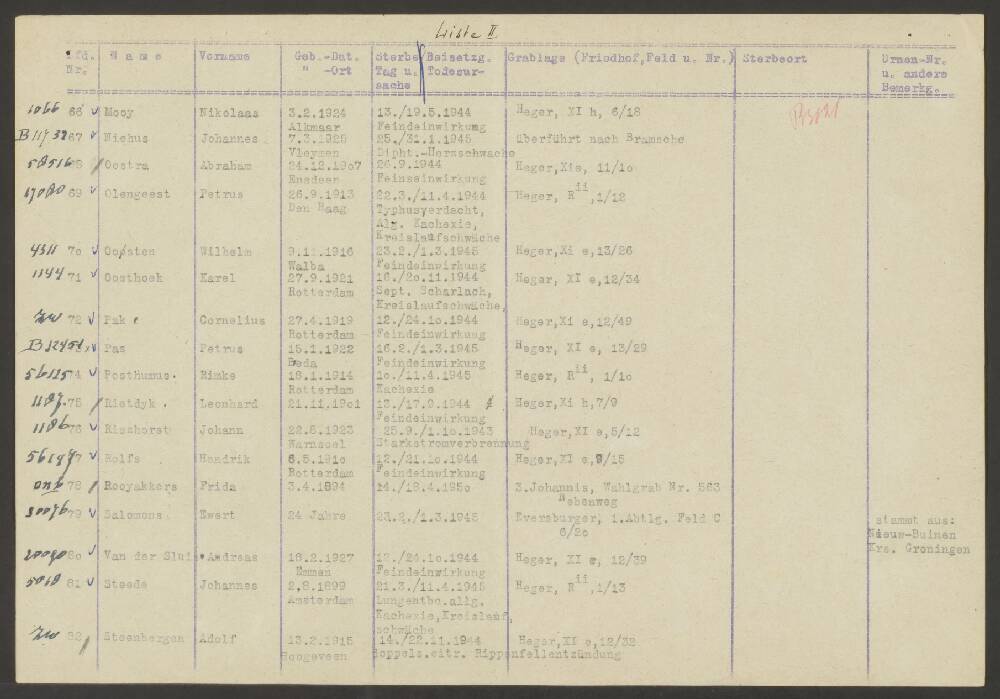 Liste II
Lfd. Name Vorname Geb.-Dat. Sterbe/Beisetzg. Grablage (Friedhof,Feld u. Nr.) Sterbeort Urnen-Nr.
Nr. " -Ort Tag u. Todesur- u. andere
sache Bemerkg.
1066 66 Mooy Nikolaas 3.2.1924 13./19.5.1944 Heger, XI h, 6/18
Alkmaar Feindeinwirkung
67 Niehus Johannes 7.3.1925 25./31.1.1945 überführt nach Bramsche
Vleymen Dipht.-Herzschwäche
Oostra Abraham 24.12.19o7 26.9.1944 Heger,XIe, 11/1o
Enedeer Feinseinwirkung
69 Olengeest Petrus 26.9.1913 22.3./11.4.1944 Heger, R ii,1/12
Den Haag Typhusverdacht,
Alg. Kachexie,
Kreislaufschwäche
4311 7o Oosten Wilhelm 9.11.1916 23.2./1.3.1945 Heger,Xi e,13/26
Walba Feindeinwirkung
1144 71 Oosthoek Karel 27.9.1921 16./2o.11.1944 Heger, XI e,12/34
Rotterdam Sept. Scharlach,
Kreislaufschwäche,
72 Pak Cornelius 27.4.1919 12./24.1o.1944 Heger,Xi e,12/49
Rotterdam Feindeinwirkung
Pas Petrus 15.1.1922 16.2./1.3.1945 Heger, XI e, 13/29
Beda Feindeinwirkung
74 Posthumus. Rimke 18.1.1914 1o./11.4.1945 Heger, R ii, 1/1o
Rotterdam Kachexie
1187. 75 Rietdyk . Leonhard 21.11.19o1 13./17.9.1944 Heger,Xi h,7/9
Feindeinwirkung
1186 76 Risshorst Johann 22.8.1923 25.9./1.1o.1943 Heger,XI e,5/12
Warnsoel Starkstromverbrennung
Rolfs Hendrik 6.5.191o 12./21.1o.1944 Heger,XI e,9/15
Rotterdam Feindeinwirkung
78 Rooyakkers Frida 3.4.1894 14./18.4.195o 3.Johannis, Wahlgrab Nr. 563
Nebenweg
79 Salomons Ewert 24 Jahre 23.2./1.3.1945 Eversburger, 1.Abtlg. Feld C stammt aus:
6/2o Nieuw-Buinen
8o Van der Sluis Andreas 18.2.1927 12./24.1o.1944 Heger, XI e, 12/39 Krs. Groningen
Emmen Feindeinwirkung
81 Steede Johannes 2.8.1899 21.3./11.4.1945 Heger, R ii,1/13
Amsterdam Lungentbc.allg.
Kachexie,Kreislauf,
schwäche
82 Steenbergen Adolf 13.2.1915 14./22.11.1944 Heger,XI e,12/32
Hoogeveen Doppels.eitr. Rippenfellentzündung